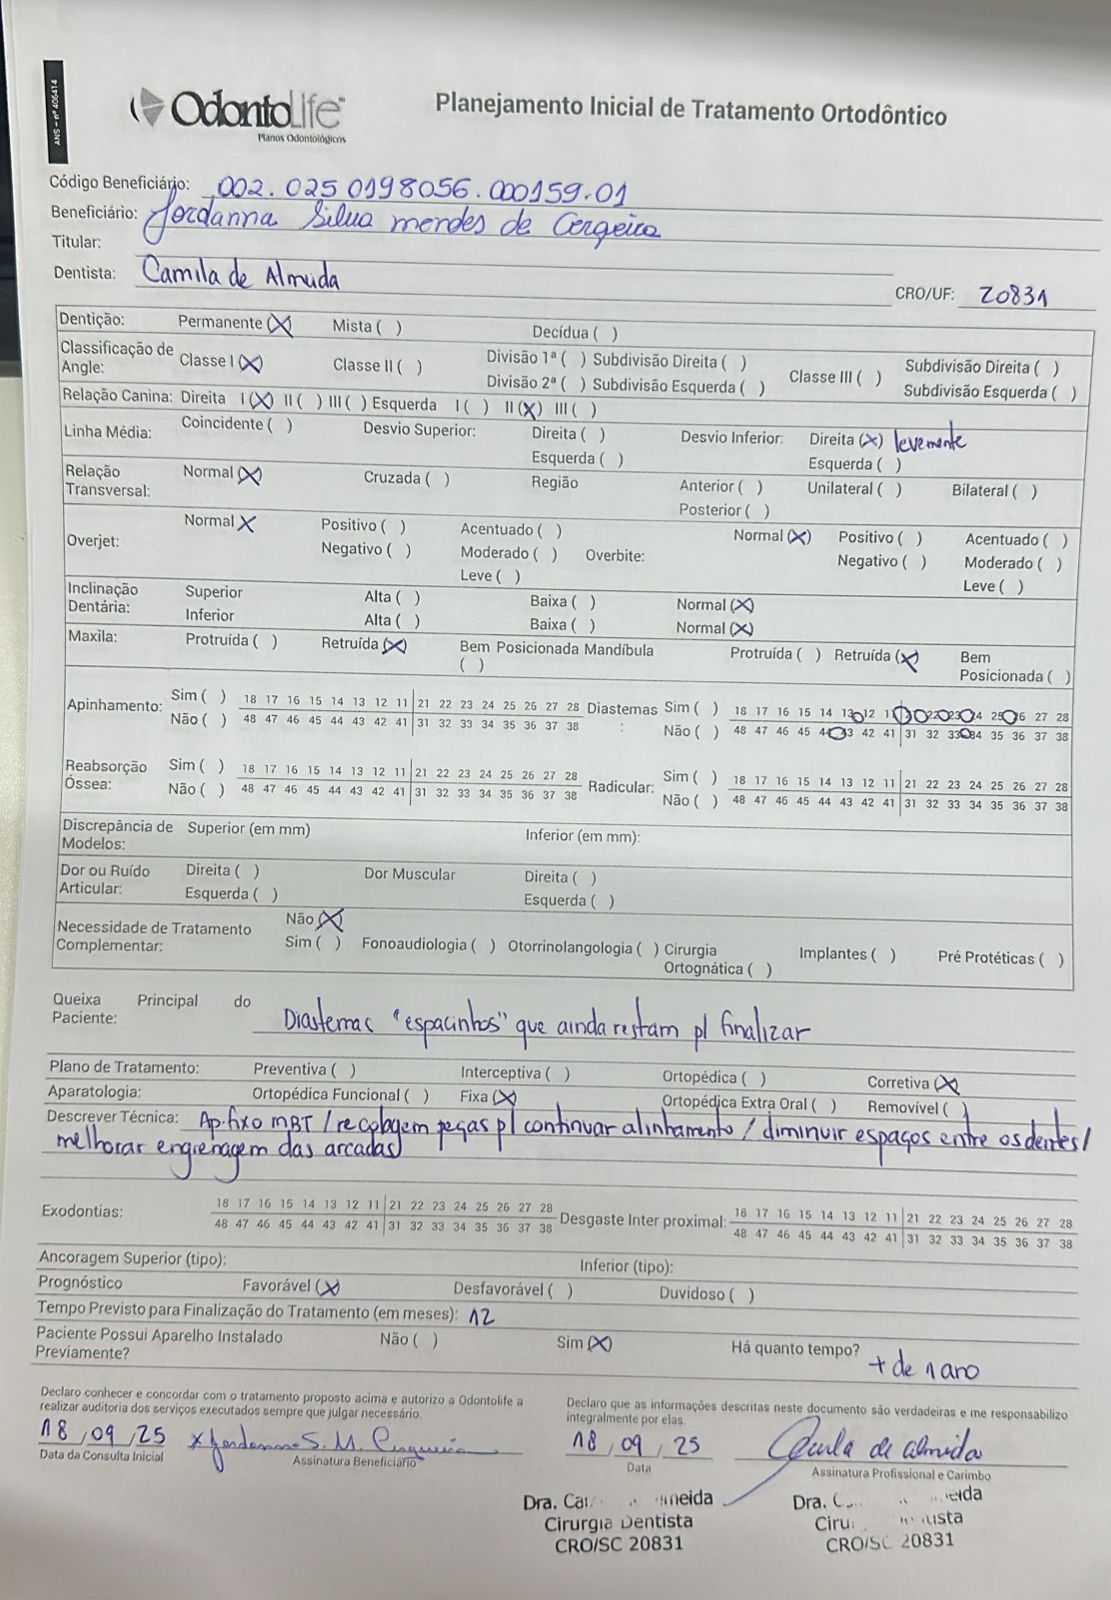 ANS – nº 406414
OdontoLife
Planos Odontológicos
Planejamento Inicial de Tratamento Ortodôntico
Código Beneficiário: 002.025 0198056.000159-01
Beneficiário: Jordanna Silva mendes de Cerqeira
Titular:
Dentista: Camila de Almuda
CRO/UF: 20831
Dentição: Permanente (X) Mista ( ) Decídua ( )
Classificação de Angle: Classe I (X) Classe II ( ) Divisão 1ª ( ) Subdivisão Direita ( ) Classe III ( ) Subdivisão Direita ( )
Divisão 2ª ( ) Subdivisão Esquerda ( ) Subdivisão Esquerda ( )
Relação Canina: Direita I (X) II ( ) III ( ) Esquerda I ( ) II (X) III ( )
Linha Média: Coincidente ( ) Desvio Superior: Direita ( ) Desvio Inferior: Direita (X) levemente
Esquerda ( ) Esquerda ( )
Relação Transversal: Normal (X) Cruzada ( ) Região Anterior ( ) Unilateral ( ) Bilateral ( )
Posterior ( )
Overjet: Normal X Positivo ( ) Acentuado ( ) Overbite: Normal (X) Positivo ( ) Acentuado ( )
Negativo ( ) Moderado ( ) Negativo ( ) Moderado ( )
Leve ( ) Leve ( )
Inclinação Dentária: Superior Alta ( ) Baixa ( ) Normal (X)
Inferior Alta ( ) Baixa ( ) Normal (X)
Maxila: Protruída ( ) Retruída (X) Bem Posicionada ( ) Mandíbula Protruída ( ) Retruída (X) Bem Posicionada ( )
Apinhamento: Sim ( ) 18 17 16 15 14 13 12 11 21 22 23 24 25 26 27 28 Diastemas : Sim ( ) 18 17 16 15 14 13 12 11 21 22 23 24 25 26 27 28
Não ( ) 48 47 46 45 44 43 42 41 31 32 33 34 35 36 37 38 Não ( ) 48 47 46 45 44 43 42 41 31 32 33 34 35 36 37 38
Reabsorção Óssea: Sim ( ) 18 17 16 15 14 13 12 11 21 22 23 24 25 26 27 28 Radicular: Sim ( ) 18 17 16 15 14 13 12 11 21 22 23 24 25 26 27 28
Não ( ) 48 47 46 45 44 43 42 41 31 32 33 34 35 36 37 38 Não ( ) 48 47 46 45 44 43 42 41 31 32 33 34 35 36 37 38
Discrepância de Modelos: Superior (em mm) Inferior (em mm):
Dor ou Ruído Articular: Direita ( ) Dor Muscular Direita ( )
Esquerda ( ) Esquerda ( )
Necessidade de Tratamento Complementar: Não (X)
Sim ( ) Fonoaudiologia ( ) Otorrinolangologia ( ) Cirurgia Ortognática ( ) Implantes ( ) Pré Protéticas ( )
Queixa Principal do Paciente: Diastemas "espacinhos" que ainda restam p/ finalizar
Plano de Tratamento: Preventiva ( ) Interceptiva ( ) Ortopédica ( ) Corretiva (X)
Aparatologia: Ortopédica Funcional ( ) Fixa (X) Ortopédica Extra Oral ( ) Removível ( )
Descrever Técnica: Ap. fixo MBT / recolagem peças p/ continuar alinhamento / diminuir espaços entre os dentes/
melhorar engrenagem das arcadas
Exodontias: 18 17 16 15 14 13 12 11 21 22 23 24 25 26 27 28 Desgaste Inter proximal: 18 17 16 15 14 13 12 11 21 22 23 24 25 26 27 28
48 47 46 45 44 43 42 41 31 32 33 34 35 36 37 38 48 47 46 45 44 43 42 41 31 32 33 34 35 36 37 38
Ancoragem Superior (tipo): Inferior (tipo):
Prognóstico Favorável (X) Desfavorável ( ) Duvidoso ( )
Tempo Previsto para Finalização do Tratamento (em meses): 12
Paciente Possui Aparelho Instalado Previamente? Não ( ) Sim (X) Há quanto tempo? + de 1 ano
Declaro conhecer e concordar com o tratamento proposto acima e autorizo a Odontolife a
realizar auditoria dos serviços executados sempre que julgar necessário.
18/09/25 x Jordanna S. M.
Data da Consulta Inicial Assinatura Beneficiário
Declaro que as informações descritas neste documento são verdadeiras e me responsabilizo
integralmente por elas.
18/09/25 Camila de Almeida
Data Assinatura Profissional e Carimbo
Dra. Almeida
Cirurgiã Dentista
CRO/SC 20831
Dra.
CRO/SC 20831